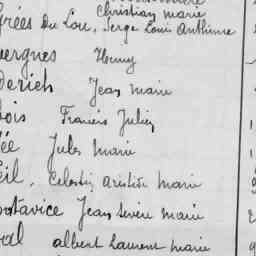 Christian marie
frées du Lou, Serge Louis Anthime
vergnes Henry
derich Jean marie
bois Francis Julien
ée Jules marie
eil, Celestin aristide marie
ostavice Jean Sévère marie
al albert Laurent marie